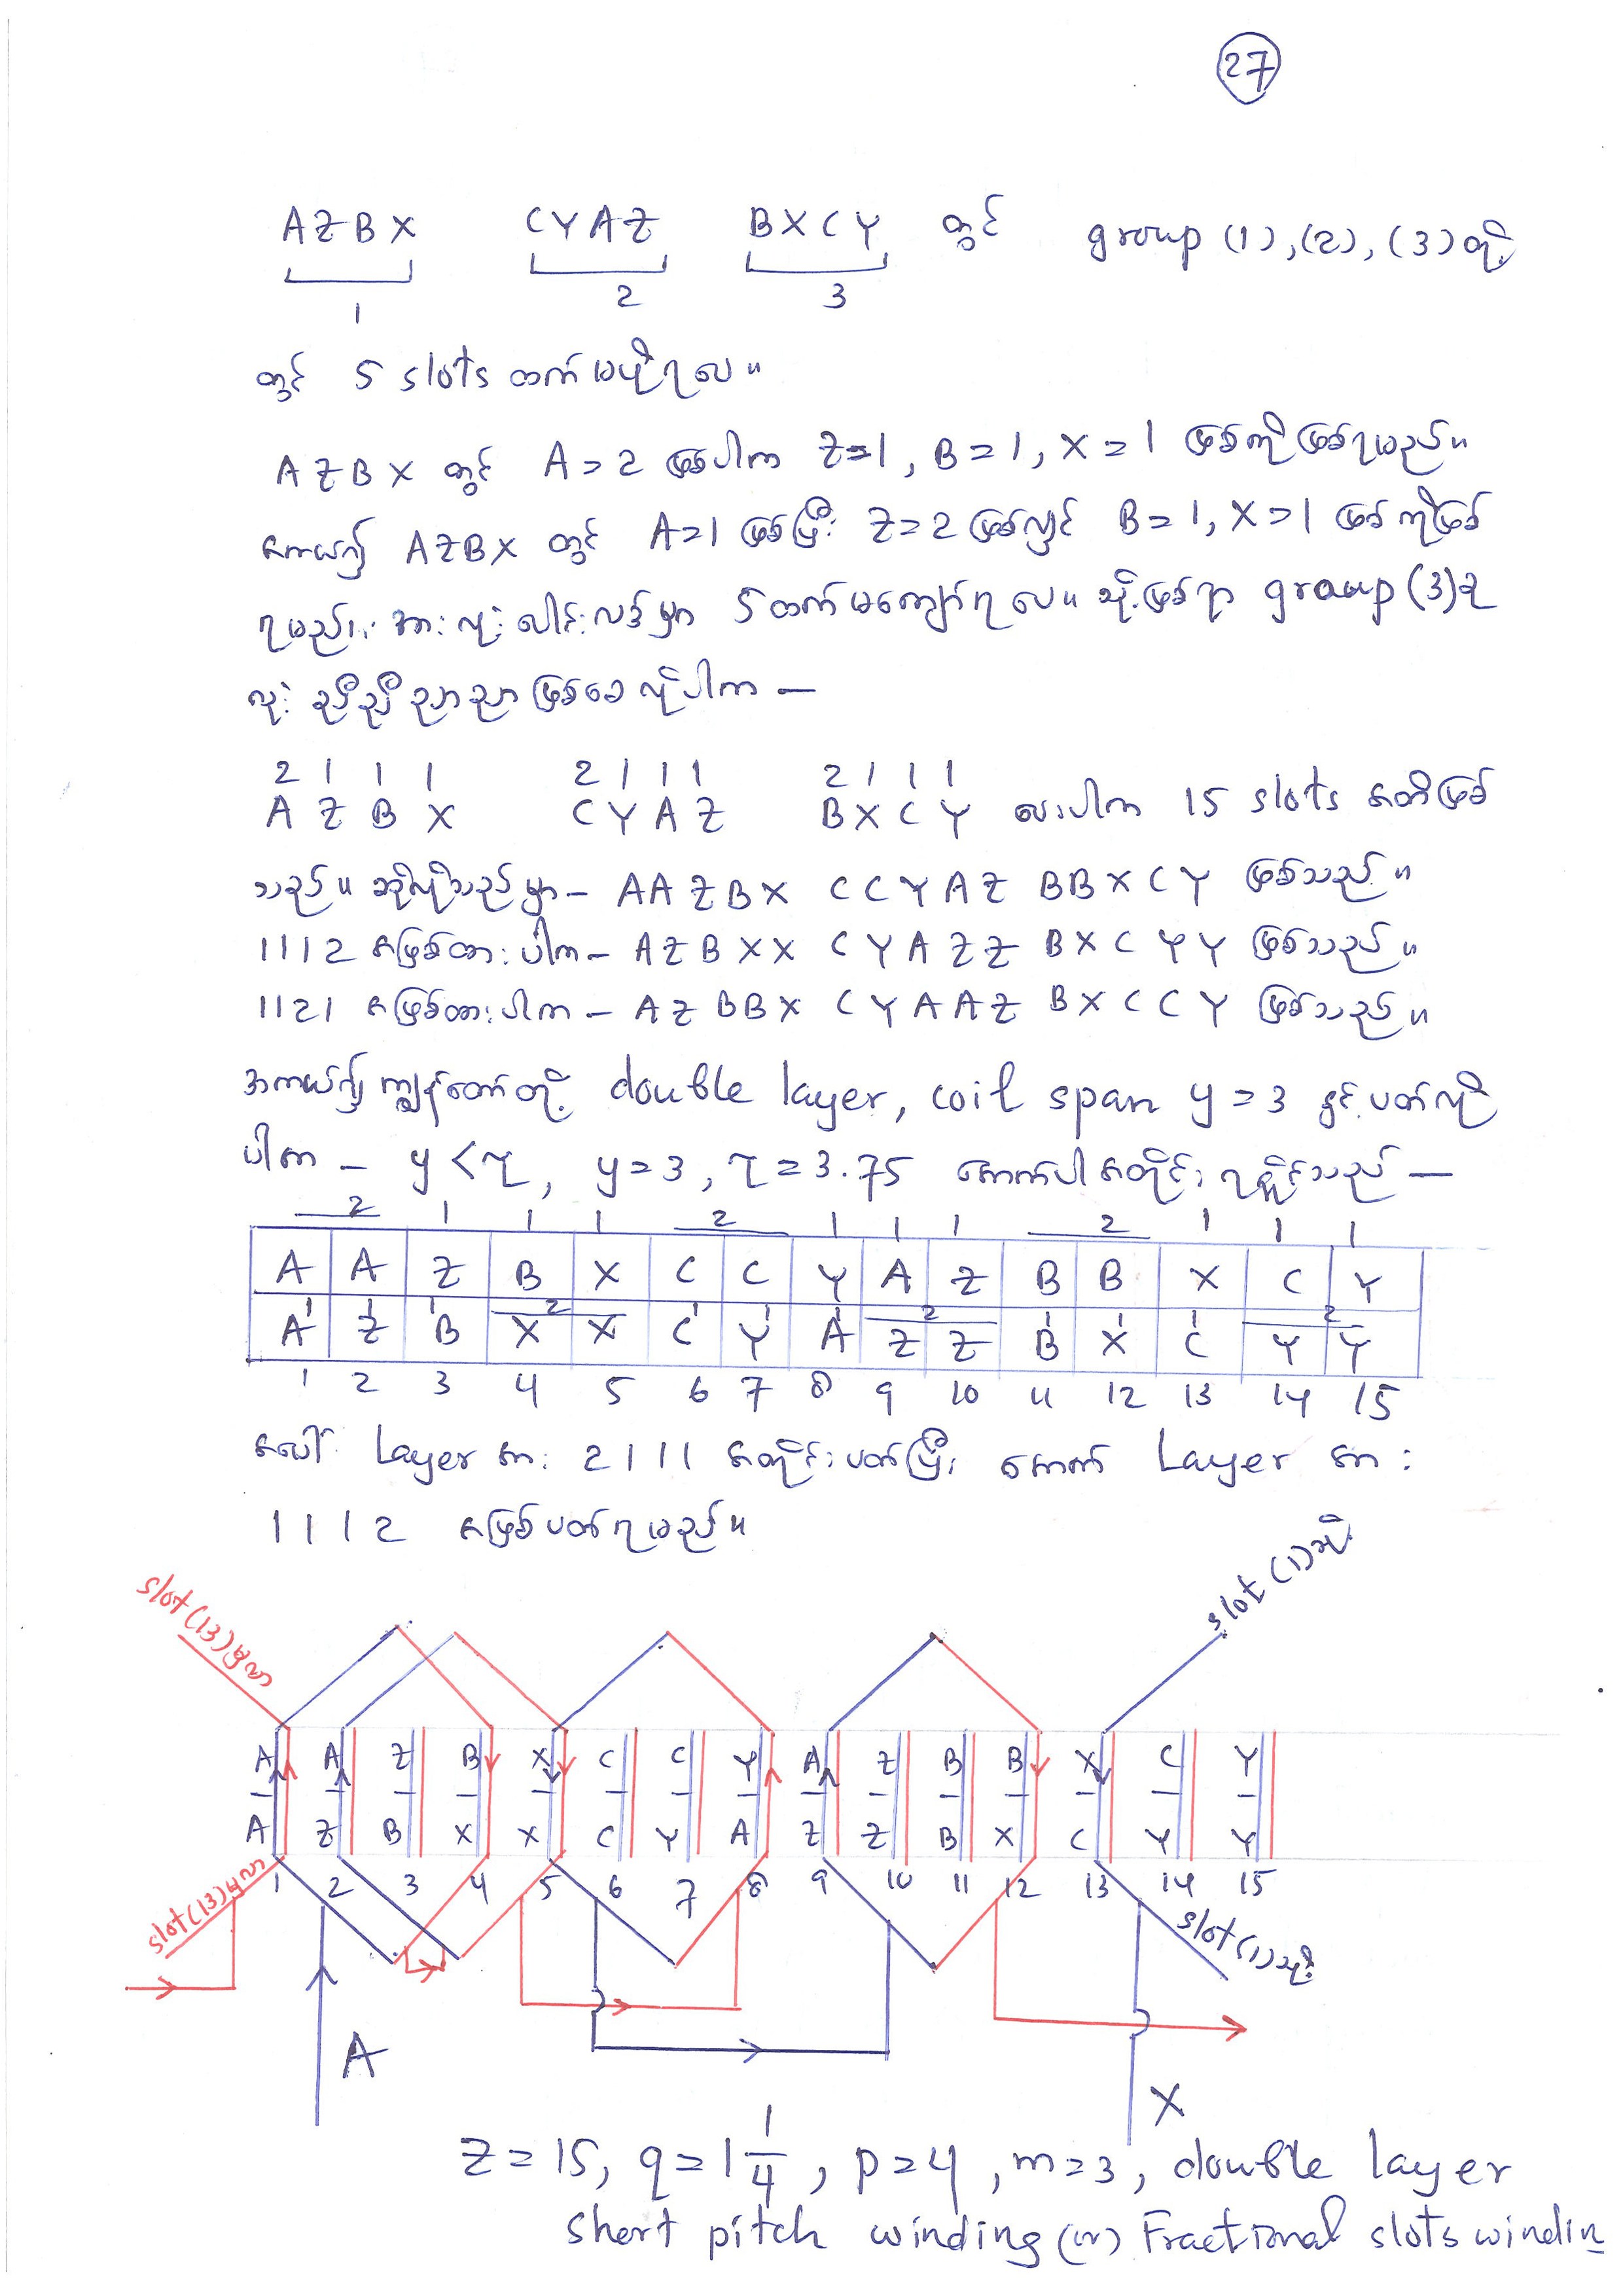 27
AZBX CYAZ BXCY တွင် group (1), (2), (3) တို့
1 2 3
တွင် 5 slots ထက် မပိုရပေ။
AZBX တွင် A = 2 ဖြစ်ပါက Z=1, B=1, X=1 ဖြစ်ကိုဖြစ်ရမည်။
အကယ်၍ AZBX တွင် A=1 ဖြစ်ပြီး Z=2 ဖြစ်လျှင် B=1, X=1 ဖြစ်ကိုဖြစ်
ရမည်။ အားလုံးပေါင်းလဒ်မှာ 5 ထက်မကျော်ရပေ။ သို့ဖြစ်ရာ group (3) ခု
လုံး ညီညီညာညာ ဖြစ်စေလိုပါက –
2 1 1 1 2 1 1 1 2 1 1 1
A Z B X C Y A Z B X C Y ပေးပါက 15 slots အတိဖြစ်
သည်။ ဆိုလိုသည်မှာ – AAZBX CCYAZ BBXCY ဖြစ်သည်။
1112 အဖြစ်ထားပါက – AZBXX CYAZZ BXCYY ဖြစ်သည်။
1121 အဖြစ်ထားပါက – AZBBX CYAAZ BXCCY ဖြစ်သည်။
အကယ်၍ ကျွန်တော်တို့ double layer, coil span y = 3 နှင့် ပတ်လို
ပါက – y < τ, y = 3, τ = 3.75 အောက်ပါအတိုင်း ရရှိနိုင်သည် –
2 1 1 1 2 1 1 1 2 1 1 1
A A Z B X C C Y A Z B B X C Y
1 1 1 2 1 1 1 2 1 1 1 2
A Z B X X C Y A Z Z B X C Y Y
1 2 3 4 5 6 7 8 9 10 11 12 13 14 15
အပေါ် Layer အား 2111 အတိုင်းပတ်ပြီး အောက် Layer အား
1112 အဖြစ်ပတ်ရမည်။
slot (13) မှလာ slot (1) သို့
A A Z B X C C Y A Z B B X C Y
A Z B X X C Y A Z Z B X C Y Y
1 2 3 4 5 6 7 8 9 10 11 12 13 14 15
slot (13) မှလာ slot (1) သို့
A X
Z = 15, q = 1 1/4, p = 4, m = 3, double layer
short pitch winding (or) Fractional slots windin